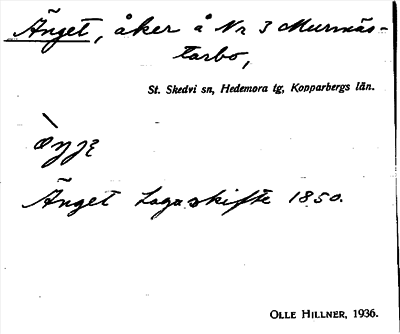 Änget, åker å Nr 3 Murmäs-
tarbo,
St. Skedvi sn, Hedemora tg, Kopparbergs län.
Änget Lagaskifte 1850.
OLLE HILLNER, 1936.